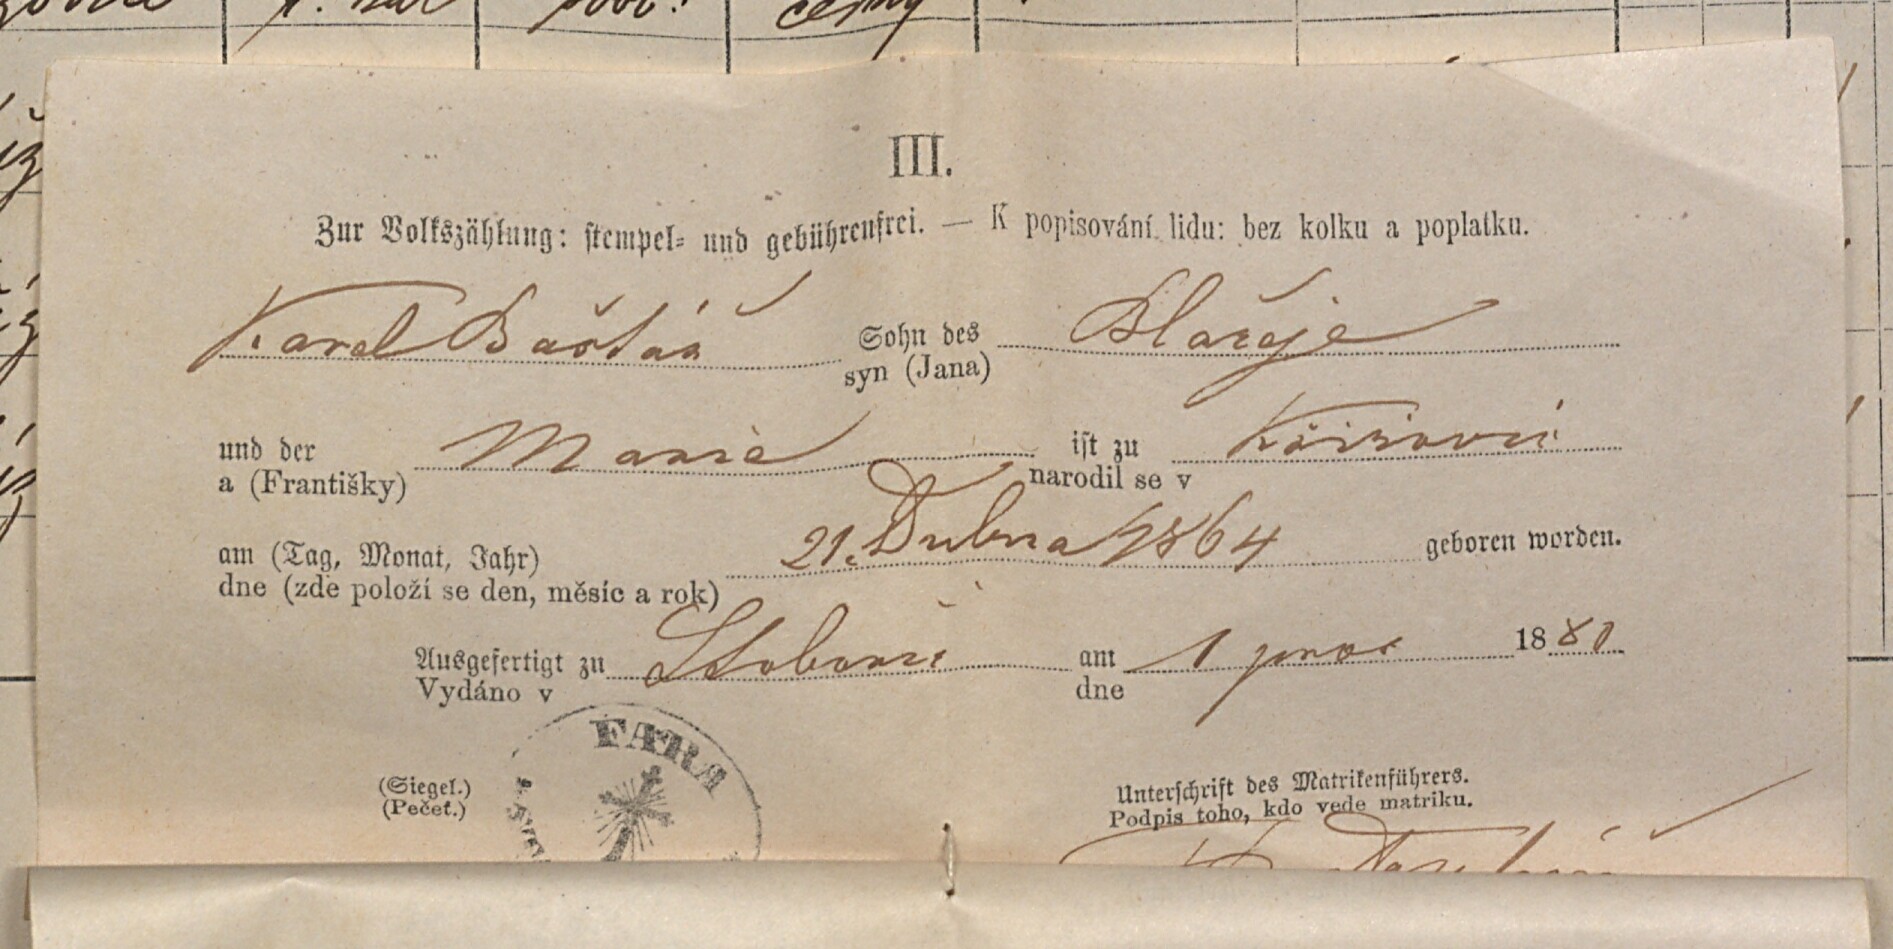 černý
III.
Zur Volkszählung: stempel- und gebührenfrei. — K popisování lidu: bez kolku a poplatku.
Karel Baštář Sohn des Blažeje
syn (Jana)
und der Marie ist zu
a (Františky) narodil se v
am (Tag, Monat, Jahr) 21. Dubna 1864 geboren worden.
dne (zde položí se den, měsíc a rok)
Ausgefertigt zu am 1 pros 1880
Vydáno v dne
FARA
(Siegel.) Unterschrift des Matrikenführers.
(Pečeť.) Podpis toho, kdo vede matriku.